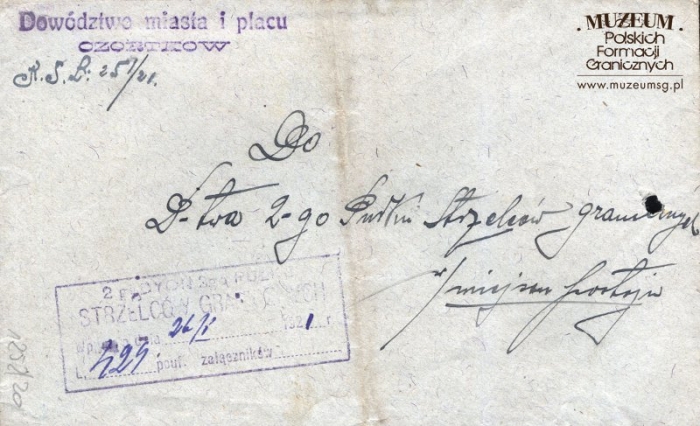 Dowództwo miasta i placu
CZORTKOW
MUZEUM
Polskich
Formacji
Granicznych
www.muzeumsg.pl
Do
D-twa 2-go Pułku Strzelców granicznych
w/ miejscu postoju
STRZELCÓW GRANICZNYCH
dnia 26/I 1921 r.
L. pouf. załączników